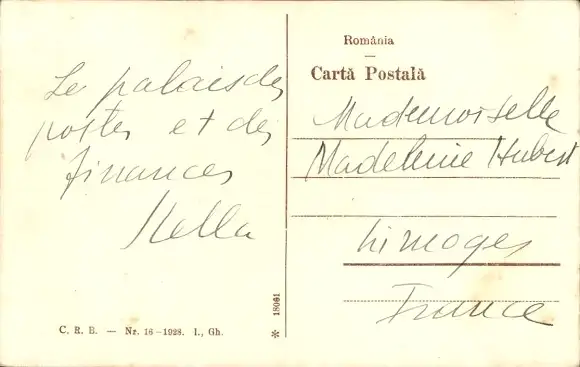 Le palais des
postes et des
finances
Stella
România
Cartă Postală
Mademoiselle
Madeleine Hubert
Limoges
France
18061
C. R. B. — Nr. 16-1928. I., Gh.